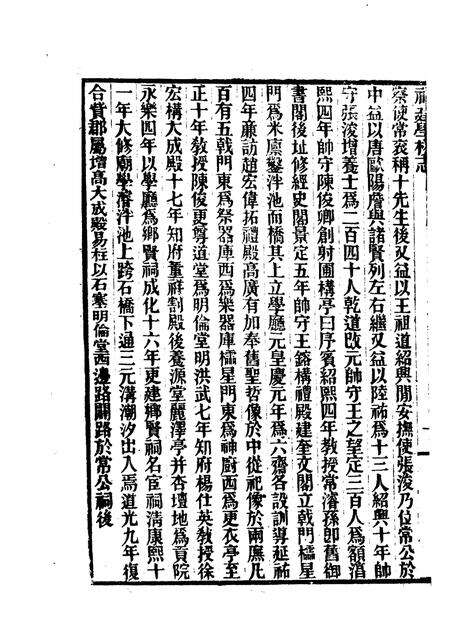 福建學校志
察使常袞稱十先生後又益以王祖道紹興閒安撫使張浚乃位常公於
中益以唐歐陽詹與諸賢列左右繼又益以陸祐爲十三人紹興十年帥
守張浚增養士爲二百四十人乾道改元帥守王之望定三百人爲額淳
熙四年帥守陳俊卿創射圃構亭曰序賓紹熙四年教授常濬孫卽舊御
書閣後址修經史閣景定五年帥守王鎔構禮殿建奎文閣立戟門櫺星
門爲米廩鑿泮池而橋其上立學廳元皇慶元年爲六齋各設訓導延祐
四年兼訪趙宏偉拓禮殿高廣有加奉舊聖哲像於中從祀像於兩廡凡
百有五戟門東爲祭器庫西爲樂器庫櫺星門東爲神廚西爲更衣亭至
正十年教授陳俊更尊道堂爲明倫堂明洪武七年知府楊仕英教授徐
宏構大成殿十七年知府董祥割殿後養源堂麗澤亭并杏壇地爲貢院
永樂四年以學廳爲鄉賢祠成化十六年更建鄉賢祠名宦祠清康熙十
一年大修廟學濬泮池上跨石橋下通三元溝潮汐出入焉道光九年復
合貲郡屬增高大成殿易柱以石塞明倫堂西邊路闢路於常公祠後